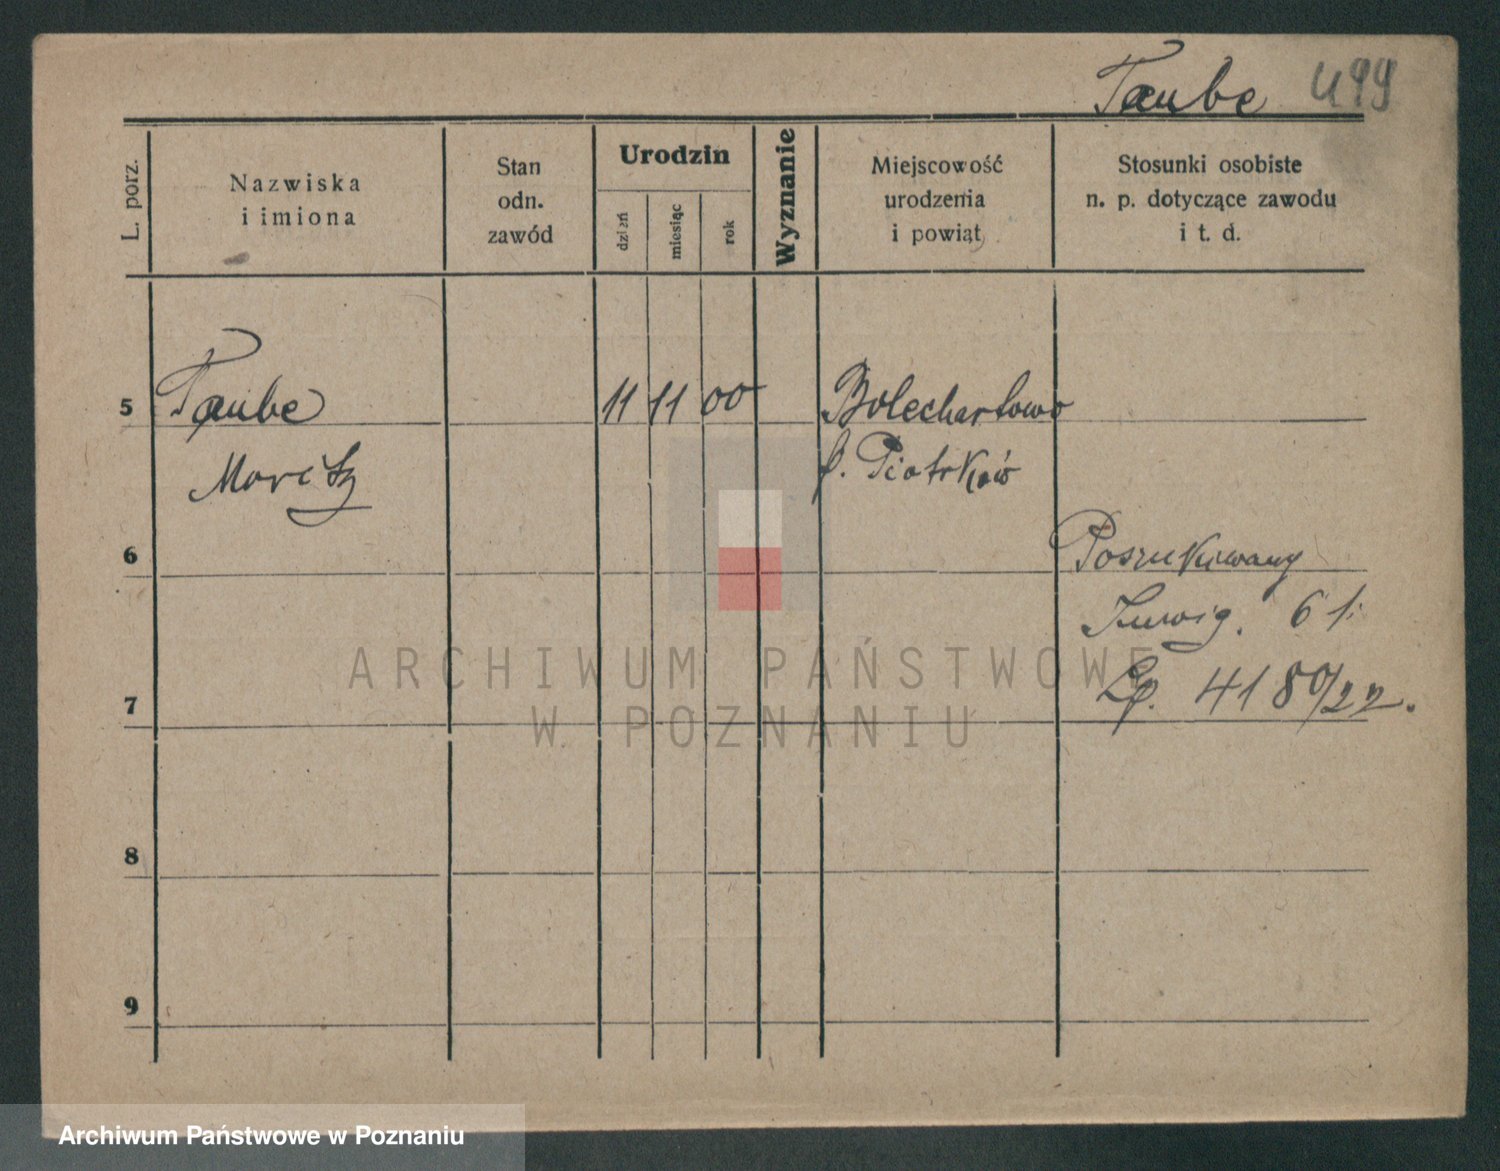 Taube 499
L. porz.
Nazwiska
i imiona
Stan
odn.
zawód
Urodzin
dzień
miesiąc
rok
Wyznanie
Miejscowość
urodzenia
i powiąt
Stosunki osobiste
n. p. dotyczące zawodu
i t. d.
5 Taube 11 11 00 Bolechartowo
Moritz p. Piotrków
6 Poszukiwany
6
Lp. 4180/22.
7
8
9
ARCHIWUM PAŃSTWOWE
W POZNANIU
Archiwum Państwowe w Poznaniu